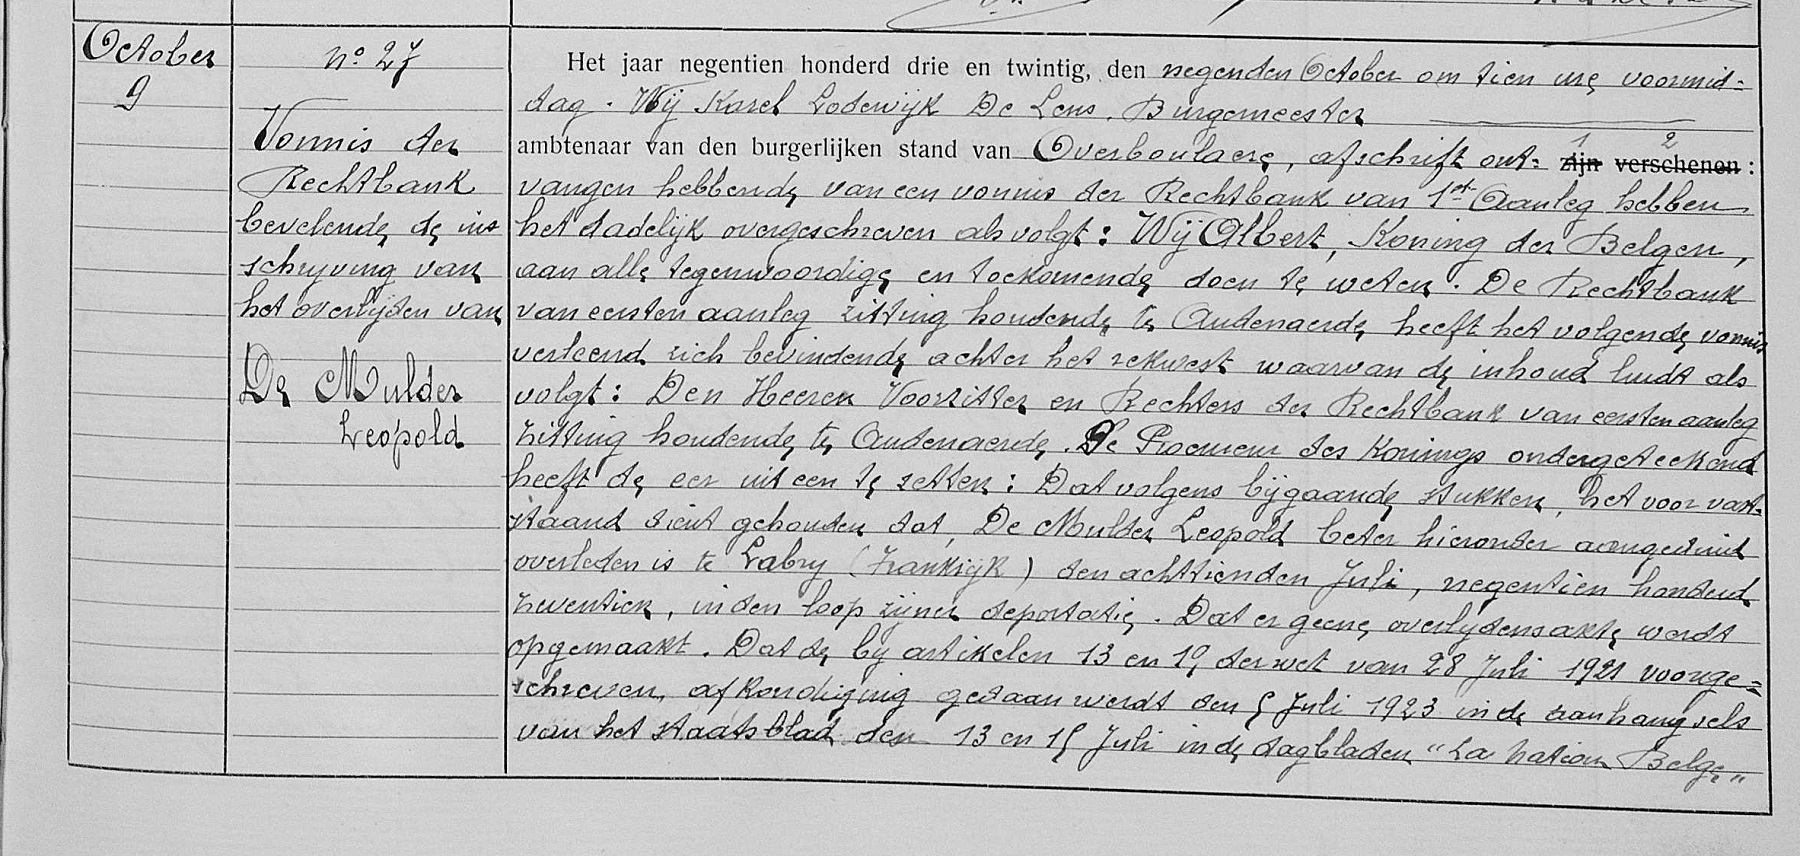 October
9
no 27
Vonnis der
Rechtbank
bevelende de in
schrijving van
het overlijden van
De Mulder
Leopold
Het jaar negentien honderd drie en twintig, den negenden October om tien ure voormid=
dag. Wij Karel Lodewijk De Lens, Burgemeester
ambtenaar van den burgerlijken stand van Overboulaere, afschrift ont= 1 zijn 2 verschenen :
vangen hebbende van een vonnis der Rechtbank van 1et Aanleg hebben
het dadelijk overgeschreven als volgt: Wij Albert, Koning der Belgen,
aan alle tegenwoordige en toekomende doen te weten. De Rechtbank
van eersten aanleg zitting houdende te Audenaerde heeft het volgende vonnis
verleend zich bevindende achter het rekwest waarvan de inhoud luidt als
volgt: Den Heeren Voorzitter en Rechters der Rechtbank van eersten aanleg
zitting houdende te Audenaerde. De Procureur des Konings ondergeteekend
heeft de eer uit een te zetten: Dat volgens bijgaande stukken, het voor vast=
staand dient gehouden dat, De Mulder Leopold beter hieronder aangeduid
overleden is te Labry (Frankrijk) den achttienden Juli, negentien honderd
zeventien, in den loop zijner deportatie. Dat er geene overlijdensakte werdt
opgemaakt. Dat de bij artikelen 13 en 19 der wet van 28 Juli 1921 voorge=
schreven afkondiging gedaan werdt den 5 Juli 1923 in de aanhangsels
van het staatsblad den 13 en 15 Juli in de dagbladen "La Nation Belge"